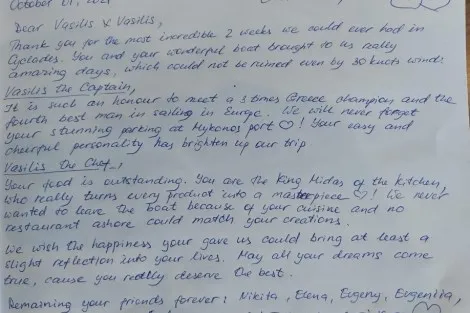 October 01, 2021
Dear Vasilis & Vasilis,
Thank you for the most incredible 2 weeks we could ever had in
Cyclades. You and your wonderful boat brought to us really
amazing days, which could not be ruined even by 30 knots wind!
Vasilis The Captain,
It is such an honour to meet a 3 times Greece champion and the
fourth best man in sailing in Europe. We will never forget
your stunning parking at Mykonos port ♡! Your easy and
cheerful personality has brighten up our trip
Vasilis The Chef,
Your food is outstanding. You are the King Midas of the kitchen,
who really turns every product into a masterpiece ♡! We never
wanted to leave the boat because of your cuisine and no
restaurant ashore could match your creations.
We wish the happiness your gave us could bring at least a
slight reflection into your lives. May all your dreams come
true, cause you really deserve the best.
Remaining your friends forever: Nikita, Elena, Evgeny, Evgeniia,